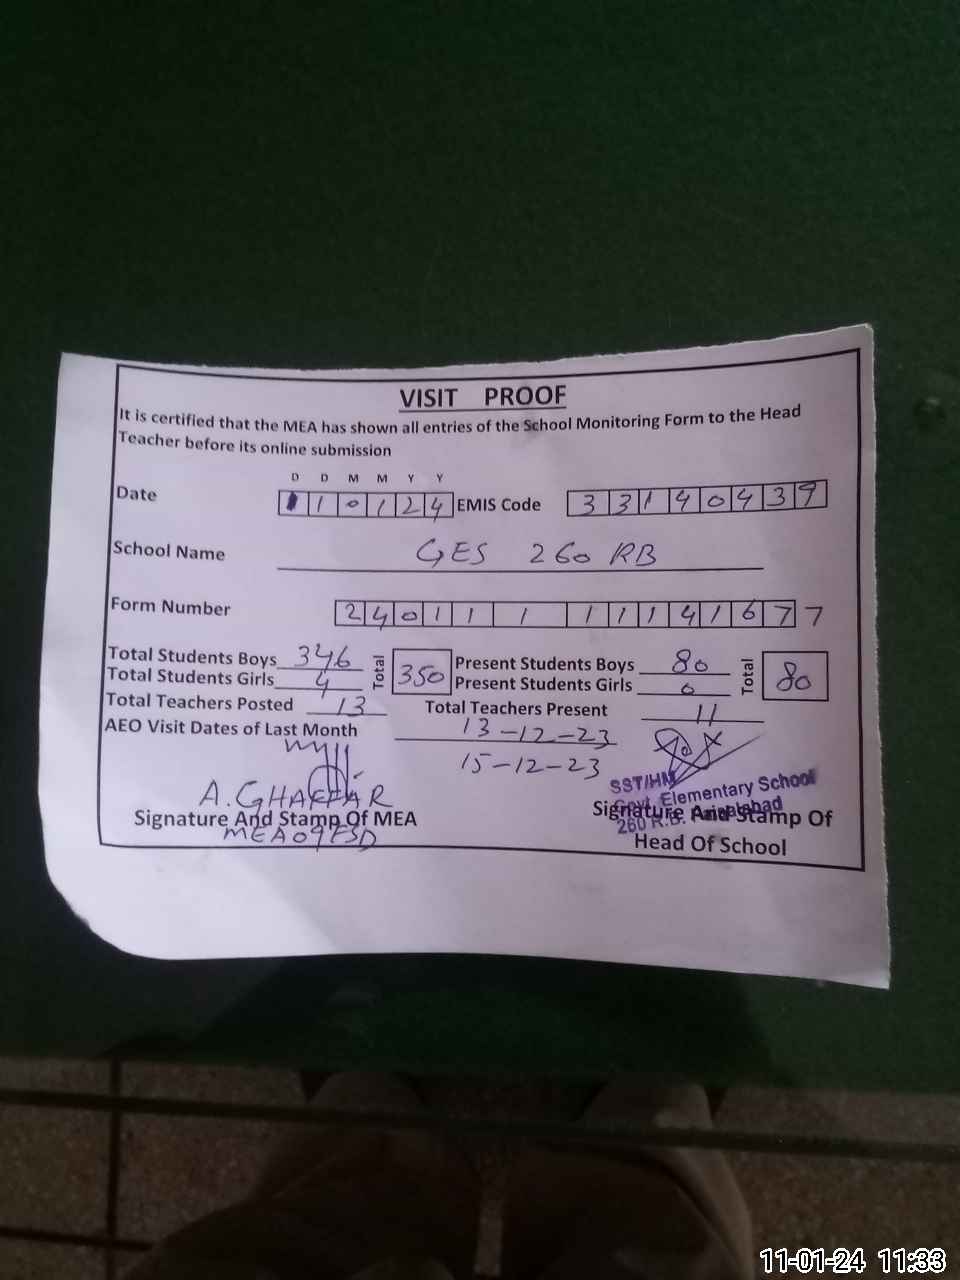 VISIT PROOF
It is certified that the MEA has shown all entries of the School Monitoring Form to the Head
Teacher before its online submission
D D M M Y Y
Date 1 1 0 1 2 4 EMIS Code 3 3 1 4 0 4 3 9
School Name GES 260 RB
Form Number 2 4 0 1 1 1 1 1 1 4 1 6 7 7
Total Students Boys 346 Total 350 Present Students Boys 80 Total 80
Total Students Girls 4 Present Students Girls 0
Total Teachers Posted 13 Total Teachers Present 11
AEO Visit Dates of Last Month 13-12-23
15-12-23
A. GHAFFAR
Signature And Stamp Of MEA
MEA09FSD
SST/HM
Govt. Elementary School
260 R.B. Faisalabad
Signature And Stamp Of
Head Of School
11-01-24 11:33